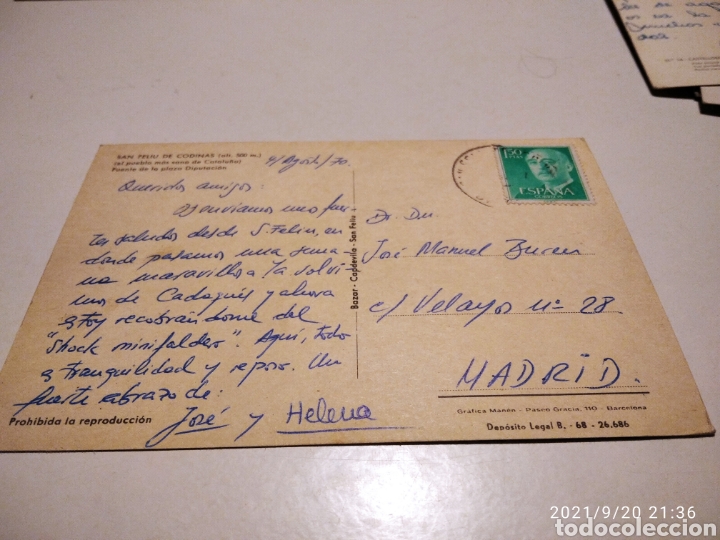 SAN FELIU DE CODINAS (alt. 500 m.)
(el pueblo más sano de Cataluña)
Fuente de la plaza Diputación
9/Agosto/70.
Queridos amigos:
os enviamos unos fuer-
tes saludos desde S. Feliu, en
donde pasamos una sema-
na maravillosa. Ya volvi-
mos de Cadaqués y ahora
estoy recobrándome del
"Shock minifaldero". Aquí, todo
es tranquilidad y reposo. Un
fuerte abrazo de:
José y Helena
Prohibida la reproducción
Bazar - Capdevila - San Feliu
1,50
PTAS
ESPAÑA
CORREOS
Sr. Dn.
José Manuel
c/ Velayos nº 28
MADRID.
Gráfica Manén - Paseo Gracia, 110 - Barcelona
Depósito Legal B. - 68 - 26.686
2021/9/20 21:36
todocoleccion